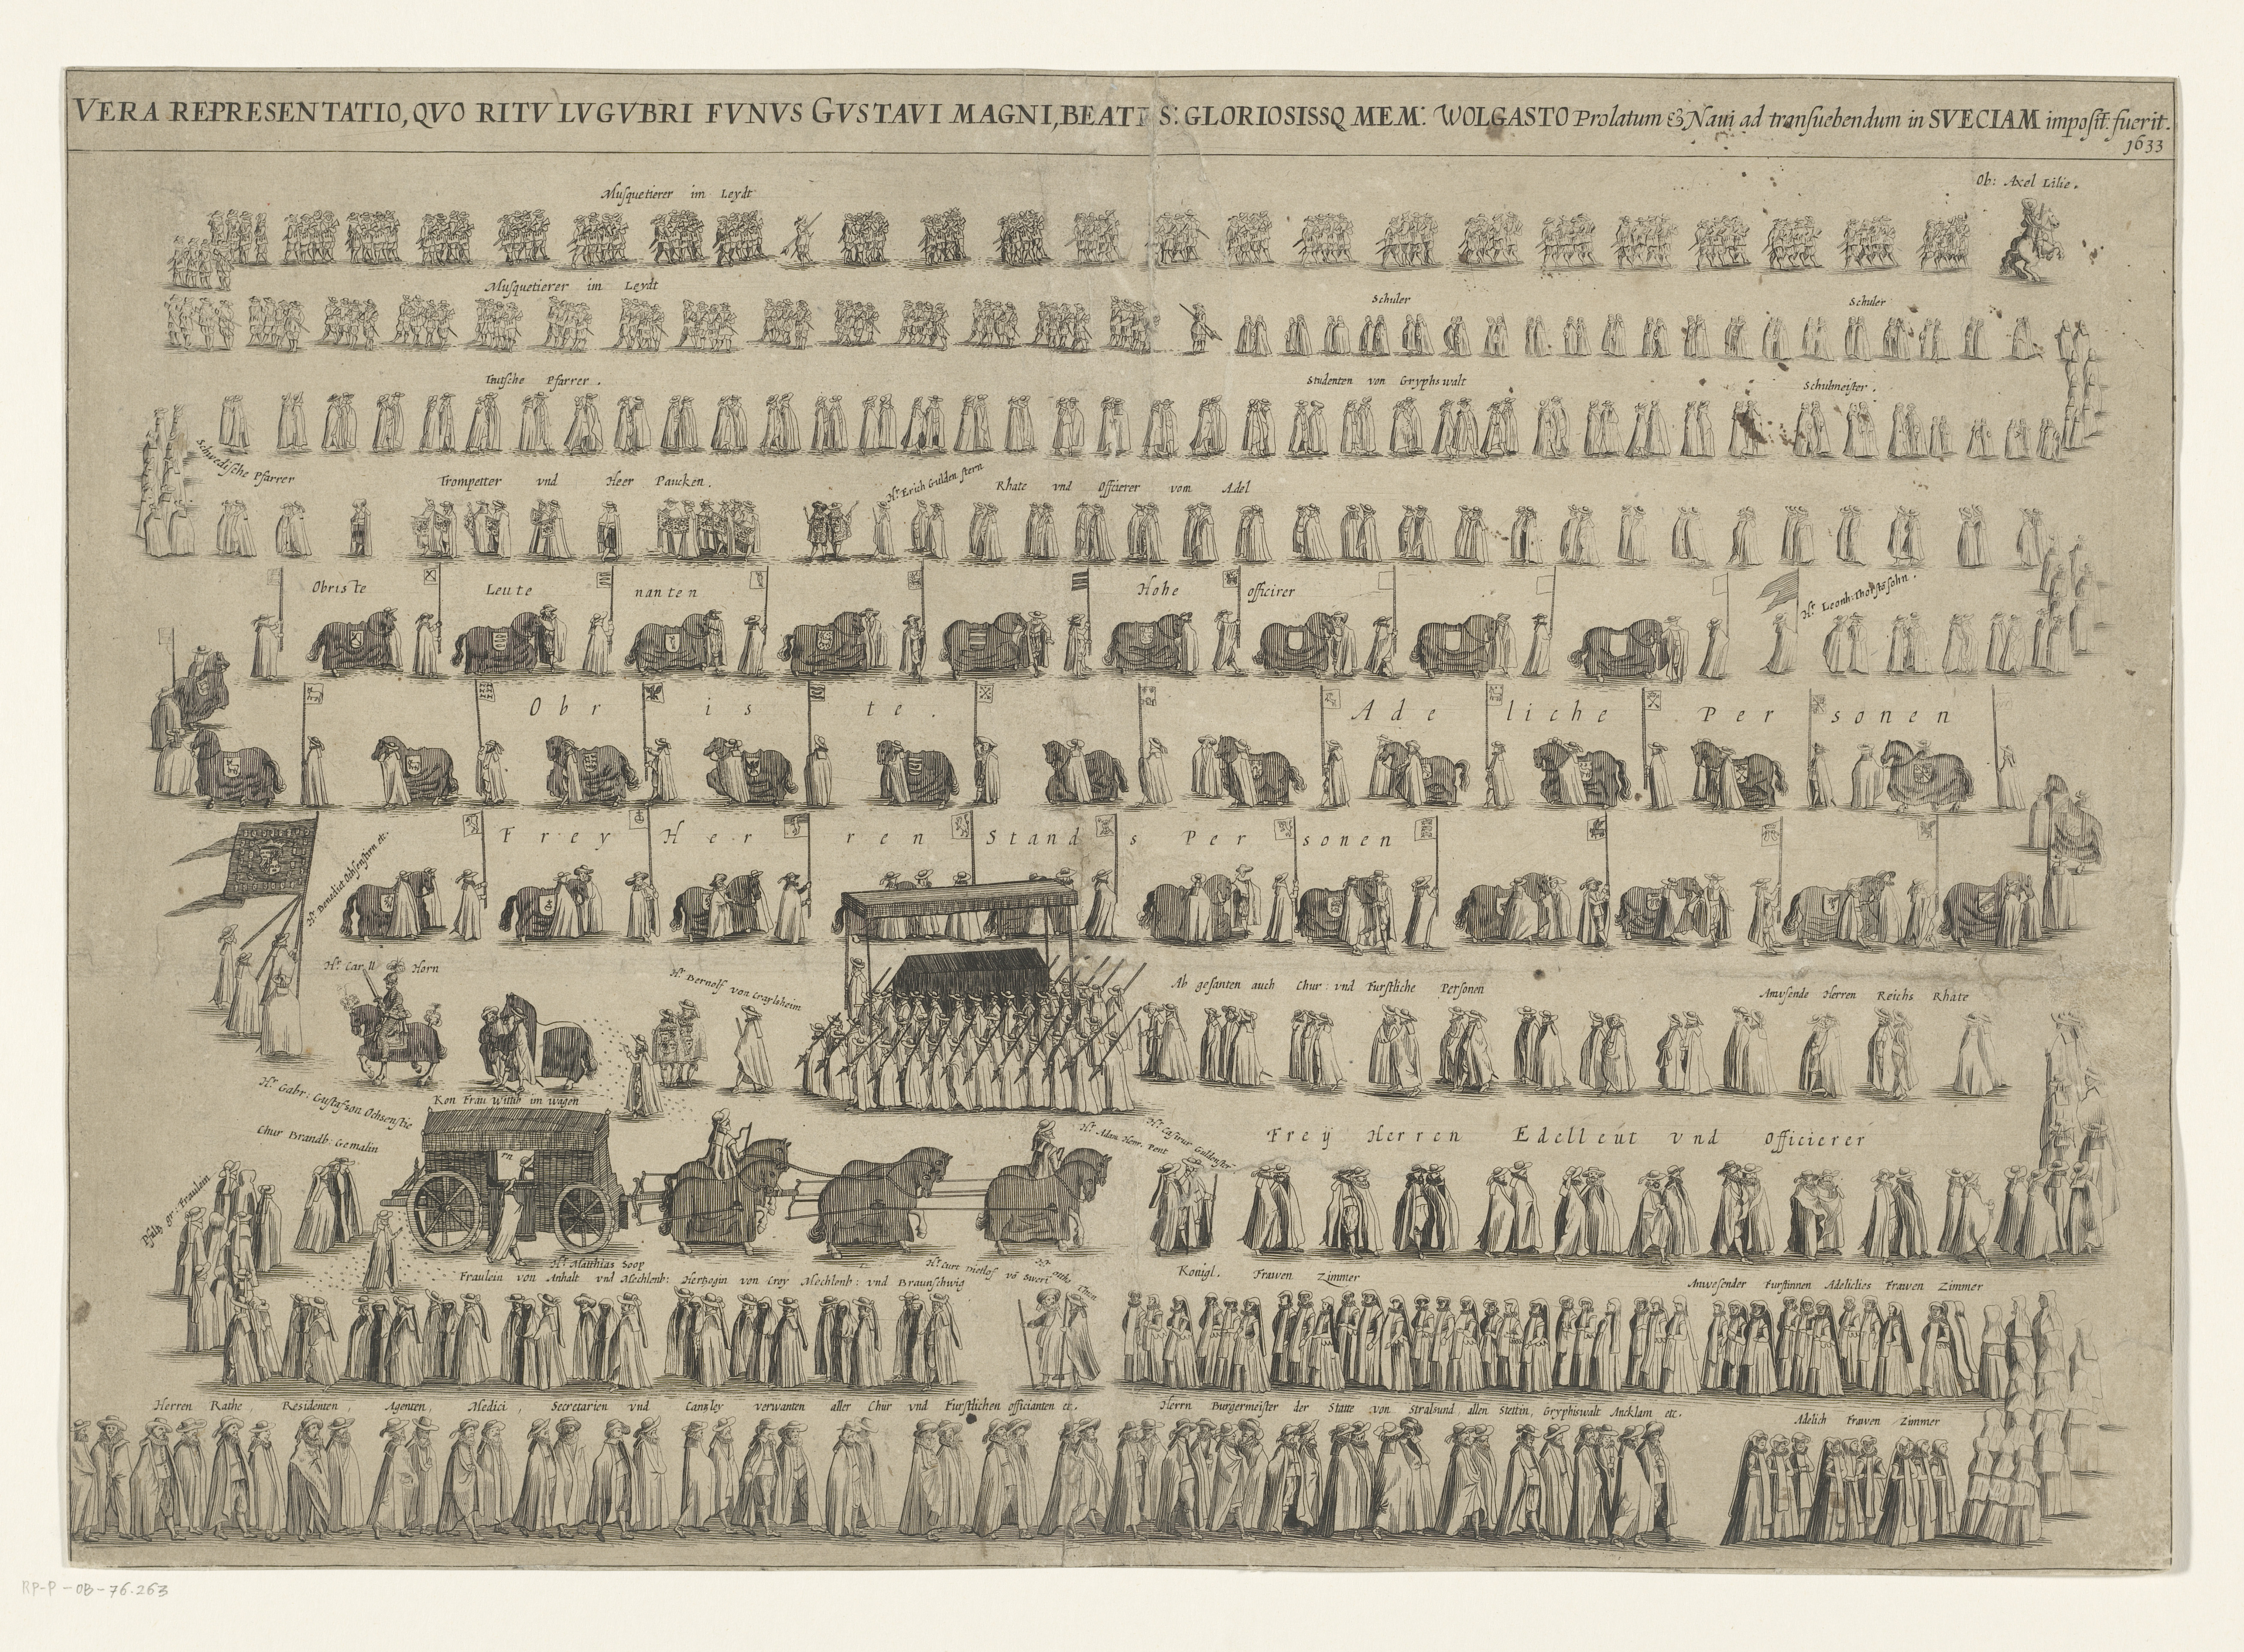 VERA REPRESENTATIO, QVO RITV LVGVBRI FVNVS GVSTAVI MAGNI, BEATIS: GLORIOSISSQ MEM: WOLGASTO Prolatum & Naui ad transuebendum in SVECIAM imposit: fuerit.
1633
Ob: Axel Lilie.
Musquetierer im Leydt
Musquetierer im Leydt
Schuler
Schuler
Teutsche Pfarrer.
Studenten von Gryphswalt
Schulmeister.
Schwedische Pfarrer
Trompetter vnd Heer Paucken.
Hr. Erich Gulden stern
Rhate vnd Officierer vom Adel
Obriste Leute nanten
Hohe officirer
Hr. Leonh: Thorstēsohn.
Obriste.
Adeliche Personen
Frey Herren Stands Personen
Hr. Benedict Ochsenstirn etc.
Hr. Carll Horn
Hr. Bernolf von Craylsheim
Ab gesanten auch Chur vnd Furstliche Personen
Anwsende Herren Reichs Rhate
Hr. Gabr: Gustafson Ochsenstie
rn
Kön Frau Wittib im wagen
Chur Brandb: Gemalin
Pfaltz gr: Fraulein
Hr. Adam Henr. Pent
Hr. Casirus Guldenster
Freÿ Herren Edelleut vnd Officierer
Hr. Matthias Soop
Fraulein von Anhalt vnd Mechlenb: Hertzogin von Croy Mechlenb: vnd Braunschwig
Hr. Curt Dietlof vō Sweri
Hr. Otto Thun
Königl. Frawen Zimmer
Anwesender Furstinnen Adeliches Frawen Zimmer
Herren Rathe, Residenten, Agenten, Medici, Secretarien vnd Cantzley verwanten aller Chur vnd Furstlichen officianten etc.
Herrn Burgermeister der Statte von Stralsund allen Stettin, Gryphiswalt Ancklam etc.
Adelich Frawen Zimmer
RP-P-OB-76.263